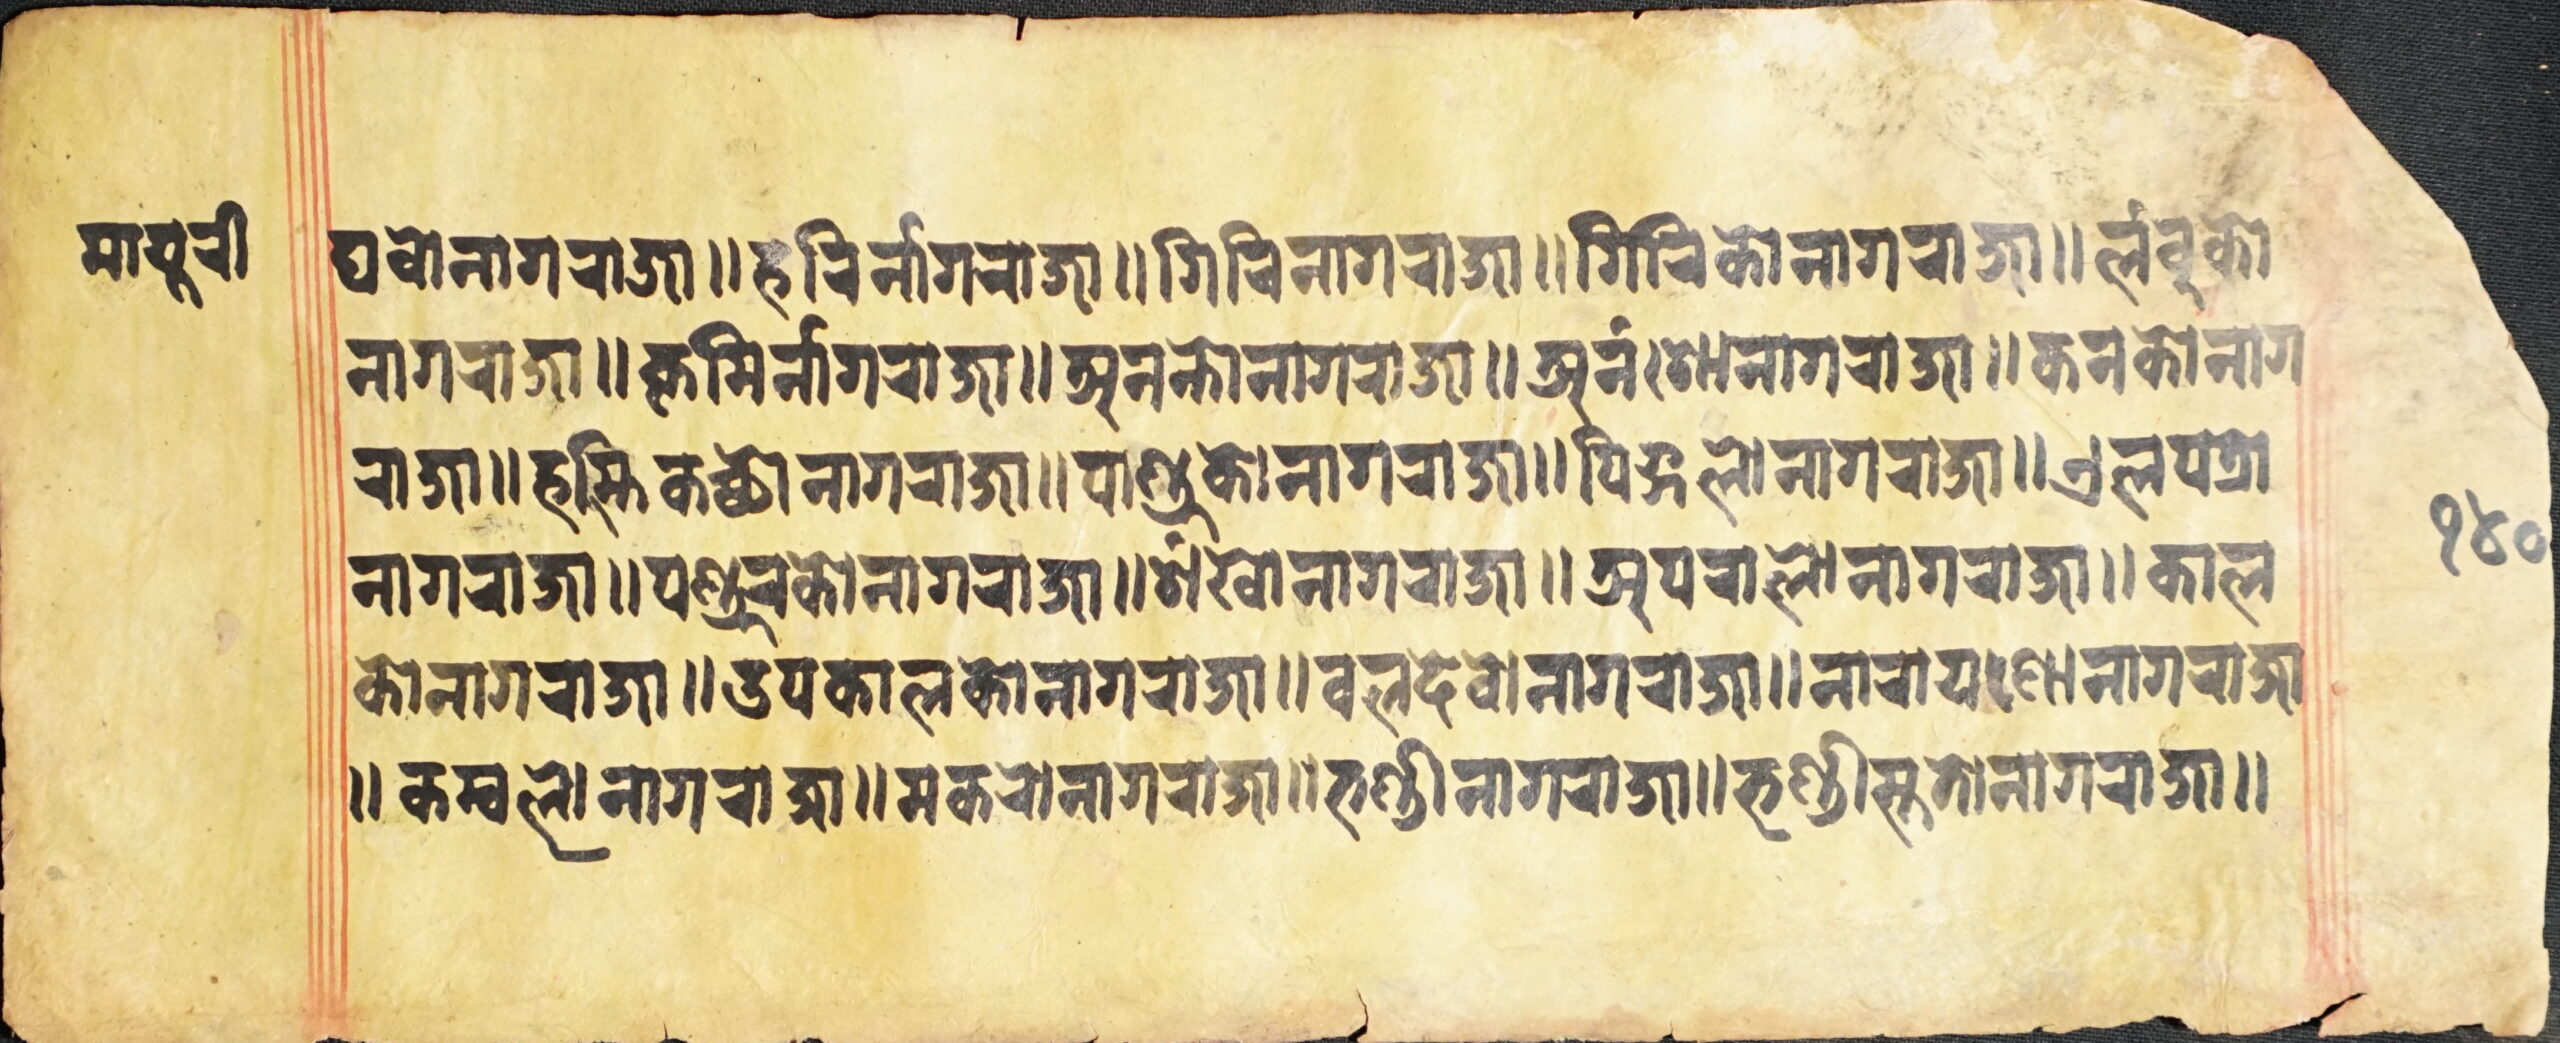 मायुरी
द्यवोनागराजा॥हरिर्नागराजा॥गिरिनागराजा॥गिरिकोनागराजा॥लंबुको
नागराजा॥कृमिर्नागराजा॥अनन्तोनागराजा॥अनंशोनागराजा॥कनकोनाग
राजा॥हस्तिकच्छोनागराजा॥पाण्डुकोनागराजा॥पिङ्गलोनागराजा॥एलपत्रो
नागराजा॥पण्डुरकोनागराजा॥शंखोनागराजा॥अपरालोनागराजा॥काल
कोनागराजा॥उपकालकोनागराजा॥बलदेवोनागराजा॥नारायणोनागराजा
॥कम्बलोनागराजा॥मकरोनागराजा॥रुण्डीनागराजा॥रुण्डीस्ततोनागराजा॥
१४०